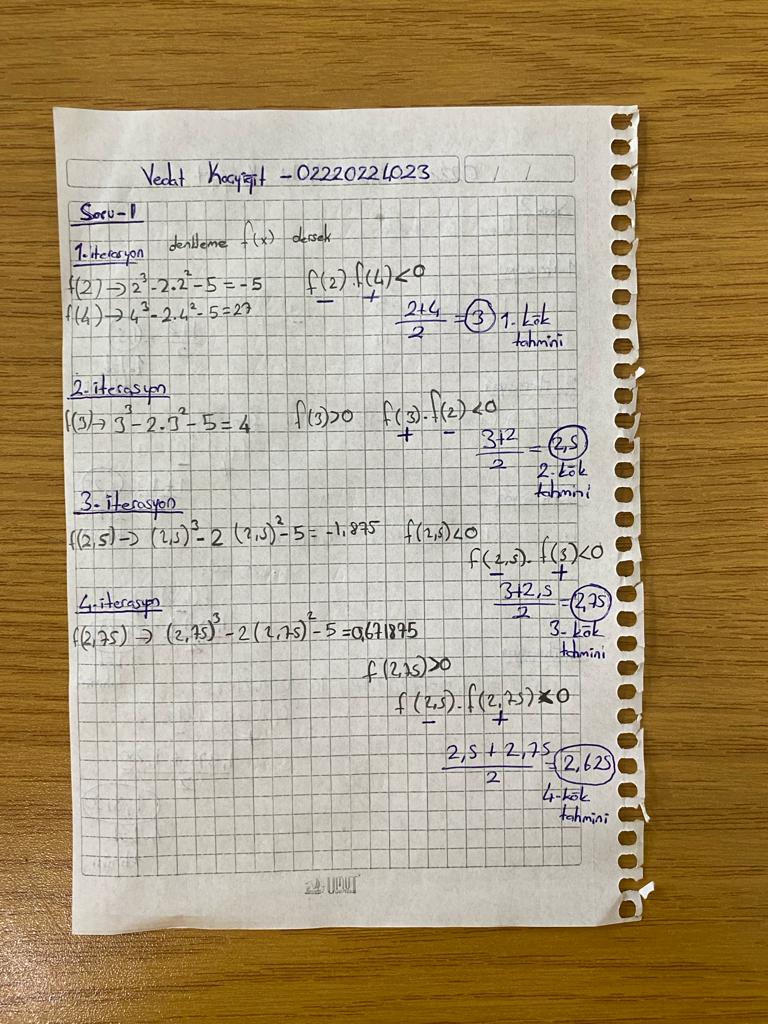 Vedat Koçyiğit - 02220224023
/ /
Soru-1
1. iterasyon denkleme f(x) dersek
f(2) → 2³ - 2.2² - 5 = -5 f(2).f(4) < 0
- +
f(4) → 4³ - 2.4² - 5 = 27
2+4/2 = 3 1. kök tahmini
2. iterasyon
f(3) → 3³ - 2.3² - 5 = 4 f(3)>0 f(3).f(2) < 0
+ -
3+2/2 = 2,5
2. kök tahmini
3. iterasyon
f(2,5) → (2,5)³ - 2 (2,5)² - 5 = -1,875 f(2,5)<0
f(2,5). f(3)<0
- +
3+2,5/2 = 2,75
3. kök tahmini
4. iterasyon
f(2,75) → (2,75)³ - 2(2,75)² - 5 = 0,671875
f(2,75)>0
f(2,5).f(2,75)<0
- +
2,5 + 2,75/2 = 2,625
4. kök tahmini
UMUT